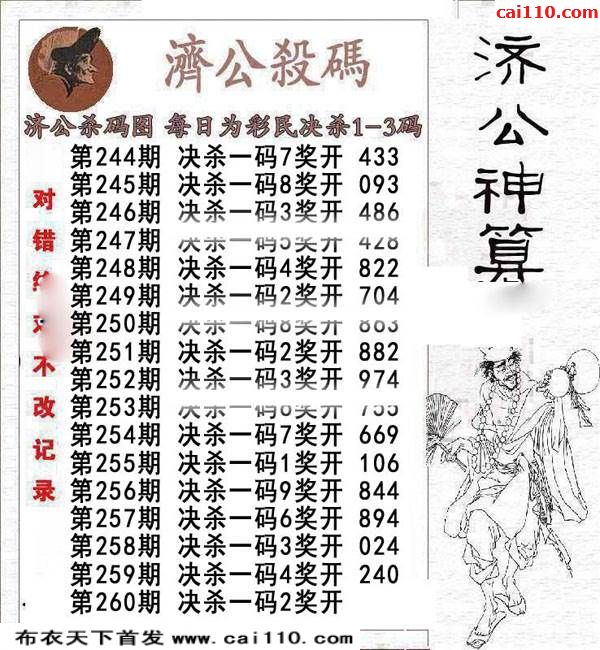 cai110.com
濟公殺碼
济公杀码图 每日为彩民决杀1-3码
第244期 决杀一码7奖开 433
第245期 决杀一码8奖开 093
第246期 决杀一码3奖开 486
第247期 决杀一码5奖开 428
第248期 决杀一码4奖开 822
第249期 决杀一码2奖开 704
第250期 决杀一码8奖开 863
第251期 决杀一码2奖开 882
第252期 决杀一码3奖开 974
第253期 奖开 755
第254期 决杀一码7奖开 669
第255期 决杀一码1奖开 106
第256期 决杀一码9奖开 844
第257期 决杀一码6奖开 894
第258期 决杀一码3奖开 024
第259期 决杀一码4奖开 240
第260期 决杀一码2奖开
对错 不改记录
济公神算
布衣天下首发 www.cai110.com